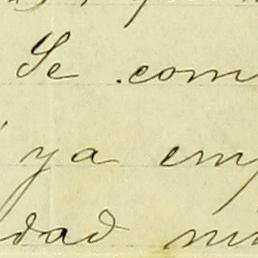 Se com
ya emp
dad mu